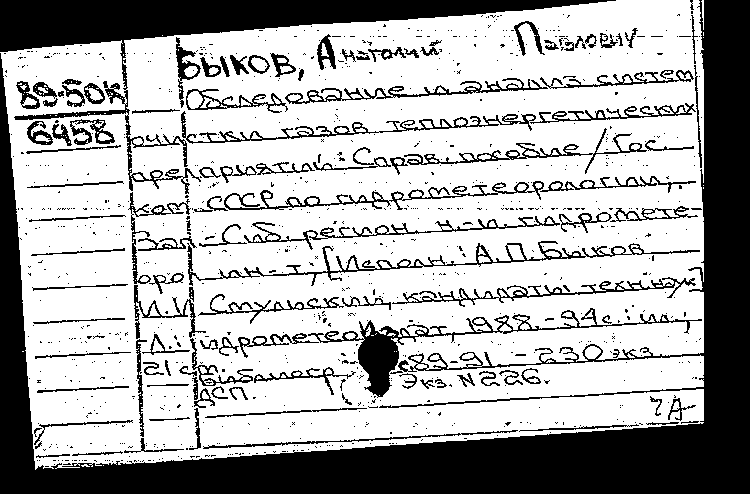 БЫКОВ, Анатолий Павлович
89-50К
6458
Обследование и анализ систем
очистки газов теплоэнергетических
предприятий: Справ. пособие / Гос.
ком. СССР по гидрометеорологии;
Зап.-Сиб. регион. н.-и. гидромете-
орол ин-т; [Исполн.: А.П.Быков,
И.И Стульский, кандидаты техн наук]
-Л.: Гидрометеоиздат, 1988.-94с.: ил.;
21 см.
Библиогр.: с.89-91. - 230 экз.
ДСП. Экз. N 226.